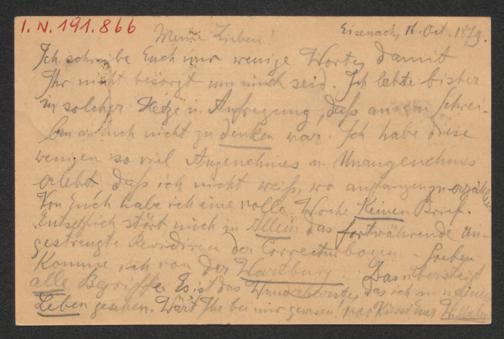 I.N. 191.866
Meine Lieben! Eisenach, 16. Oct. 1879.
Ich schreibe Euch nur wenige Worte, damit
Ihr nicht besorgt um mich seid. Ich lebte bisher
in solcher Hetze u Aufregung, daß an ein Schrei-
ben an Euch nicht zu denken war. Ich habe diese
wenigen so viel Angenehmes u Unangenehmes
erlebt, daß ich nicht weiß, wo anzufangen zu erzählen
Von Euch habe ich eine volle Woche keinen Brief.
Entsetzlich stört mich zu Allem das fortwährende an-
gestrengte Revidiren der Correcturbogen. Soeben
komme ich von der Wartburg. Das übersteigt
alle Begriffe. Es ist das das ich in meinem
Leben gesehen. Wärt Ihr bei mir gewesen! Küsse